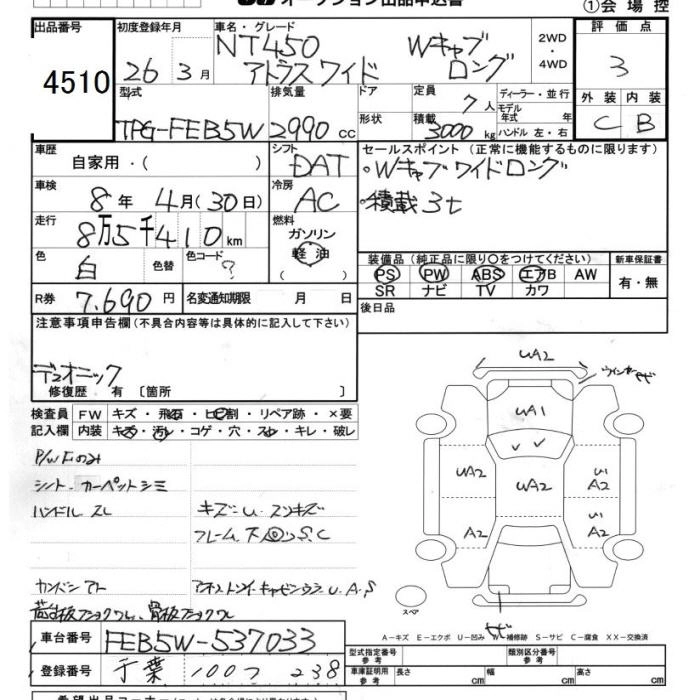 オークション出品申込書
①会場控
出品番号 4510
初度登録年月 26年 3月
車名・グレード NT450 アトラスワイド Wキャブ ロング
2WD・4WD
評価点 3
型式 TPG-FEB5W
排気量 2990 cc
ドア
形状
定員 7人
積載 3000 kg
ディーラー・並行
モデル年式 年
ハンドル 左・右
外装 C
内装 B
車歴 自家用・( )
シフト DAT
セールスポイント (正常に機能するものに限ります)
・Wキャブワイドロング
・積載3t
車検 8年 4月(30日)
冷房 AC
走行 8万5千410km
燃料 ガソリン 軽油 ( )
色 白
色替
色コード ?
装備品 (純正品に限り〇をつけてください)
新車保証書
PS PW ABS エアB AW
SR ナビ TV カワ
有・無
R券 7.690円
名変通知期限 月 日
後日品
注意事項申告欄 (不具合内容等は具体的に記入して下さい)
デュオニック
修復歴 有 〔箇所 〕
検査員記入欄
FW キズ・飛石・ヒビ割・リペア跡・×要
内装 キズ・汚レ・コゲ・穴・スレ・キレ・破レ
P/W Fのみ
シート・カーペットシミ
ハンドル スレ
キズ・U・スリキズ
フレーム 下回りS.C
UA2
ウインカーキズ
UA1
UA2
UA2
A2
A2
A2
キズ
スペア
A-キズ E-エクボ U-凹み W-補修跡 S-サビ C-腐食 XX-交換済
車台番号 FEB5W-537033
型式指定番号 参考
類別区分番号 参考
登録番号 千葉 100つ 238
車庫証明用 参考 長さ cm 幅 cm 高さ cm